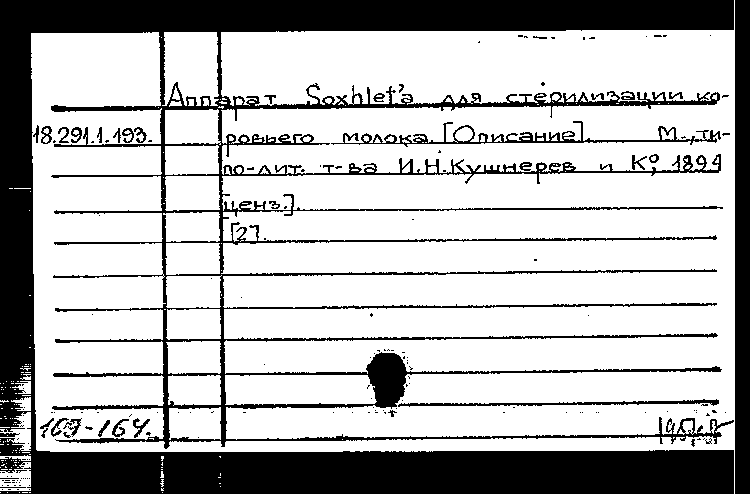 Аппарат Soxhlet'а для стерилизации ко-
18.291.1.193. ровьего молока. [Описание]. М., ти-
по-лит. т-ва И.Н.Кушнерев и К°, 1894
[ценз.].
[2].
169-164.